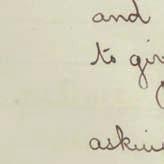 and
to gi
aski